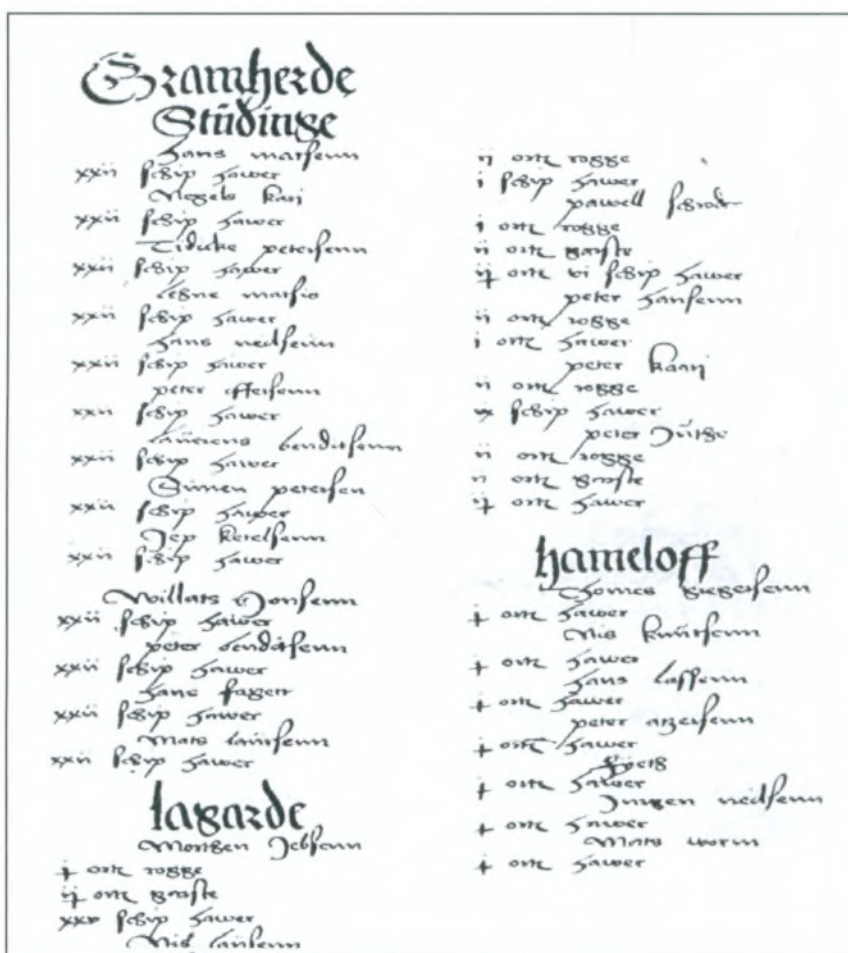 Gramherde
Stüdinge
Hans matsenn
xxii schip hawer
Negels kari
xxii schip hawer
Tideke petersenn
xxii schip hawer
Legne matsis
xxii schip hawer
Hans neilsenn
xxii schip hawer
peter effersenn
xxii schip hawer
laurens bendetsenn
xxii schip hawer
Simen petersen
xxii schip hawer
Jep ketelsenn
xxii schip hawer
Willats Jonsenn
xxii schip hawer
peter bendetsenn
xxii schip hawer
Hans
xxii schip hawer
Mats laursenn
xxii schip hawer
lagarde
Morthen Jebsenn
j ortz rogge
ij ortz garste
xxv schip hawer
Nis lausenn
ii ortz rogge
i schip hawer
pawell schroder
i ortz rogge
ii ortz garste
ij ortz vi schip hawer
peter hansenn
ii ortz rogge
i ortz hawer
peter kaari
ii ortz rogge
ix schip hawer
peter Jütge
ii ortz rogge
ii ortz garste
ij ortz hawer
hameloff
Thomes giegersenn
j ortz hawer
Nis knutsenn
j ortz hawer
Hans lassenn
j ortz hawer
peter atzersenn
j ortz hawer
j ortz hawer
Jurgen neilsenn
j ortz hawer
Mats worm
j ortz hawer